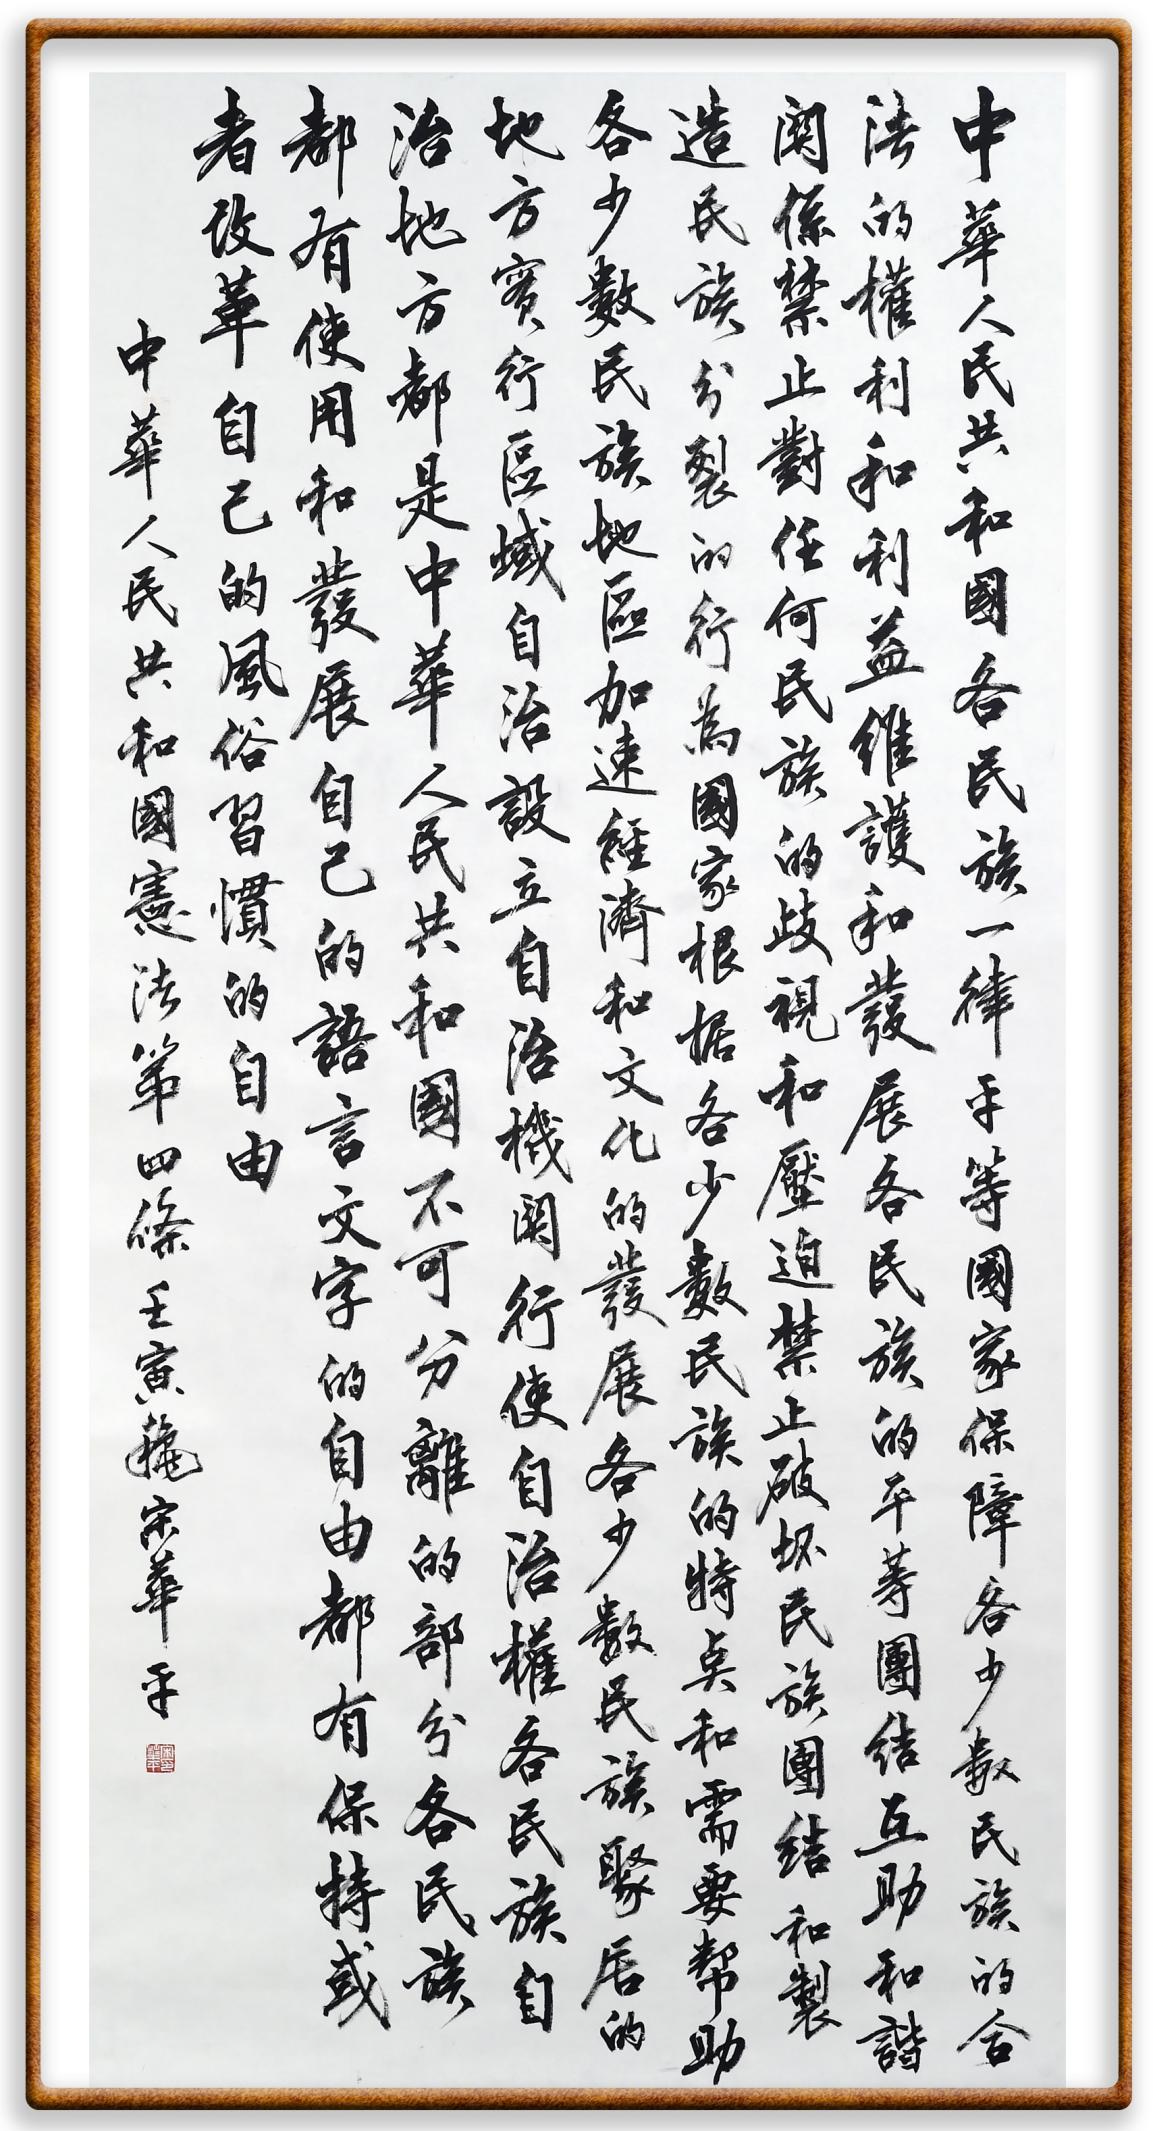 中華人民共和國各民族一律平等國家保障各少數民族的合
法的權利和利益維護和發展各民族的平等團結互助和諧
関係禁止對任何民族的歧視和壓迫禁止破坏民族團結和製
造民族分裂的行為國家根据各少數民族的特点和需要幫助
各少數民族地區加速經濟和文化的發展各少數民族聚居的
地方實行區域自治設立自治機関行使自治權各民族自
治地方都是中華人民共和國不可分離的部分各民族
都有使用和發展自己的語言文字的自由都有保持或
者改革自己的風俗習慣的自由
中華人民共和國憲法第四條壬寅秋宋華平